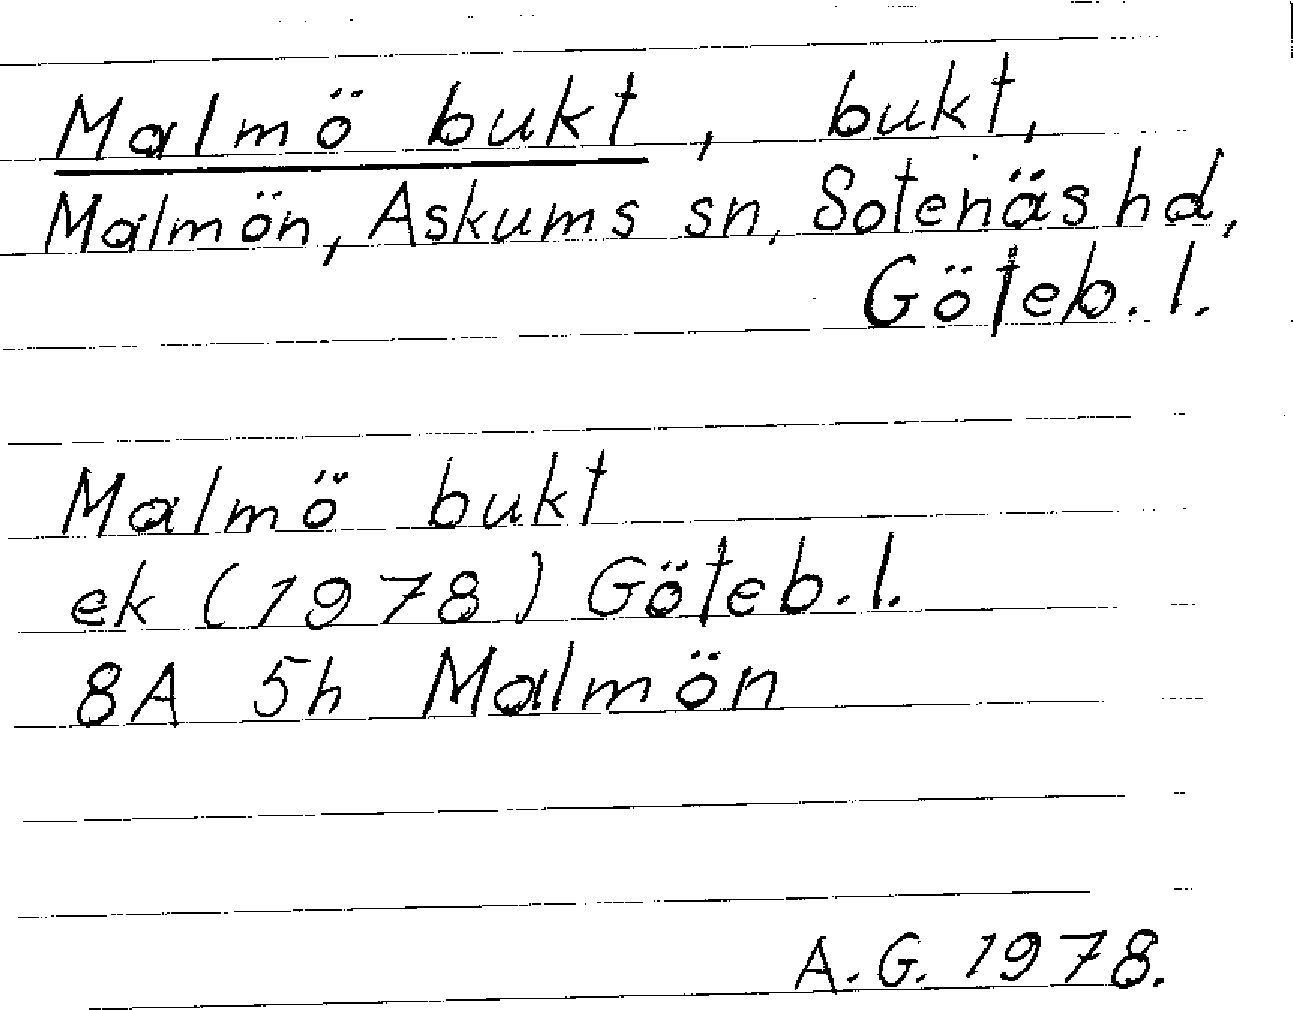 Malmö bukt, bukt,
Malmön, Askums sn, Sotenäs hd,
Göteb. l.
Malmö bukt
ek (1978) Göteb. l.
8A 5h Malmön
A. G. 1978.